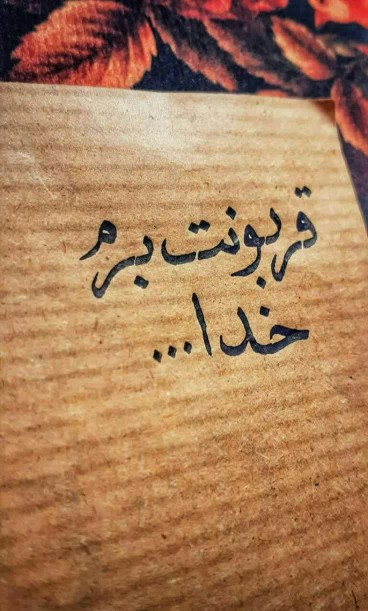 قربونت برم
خدا...